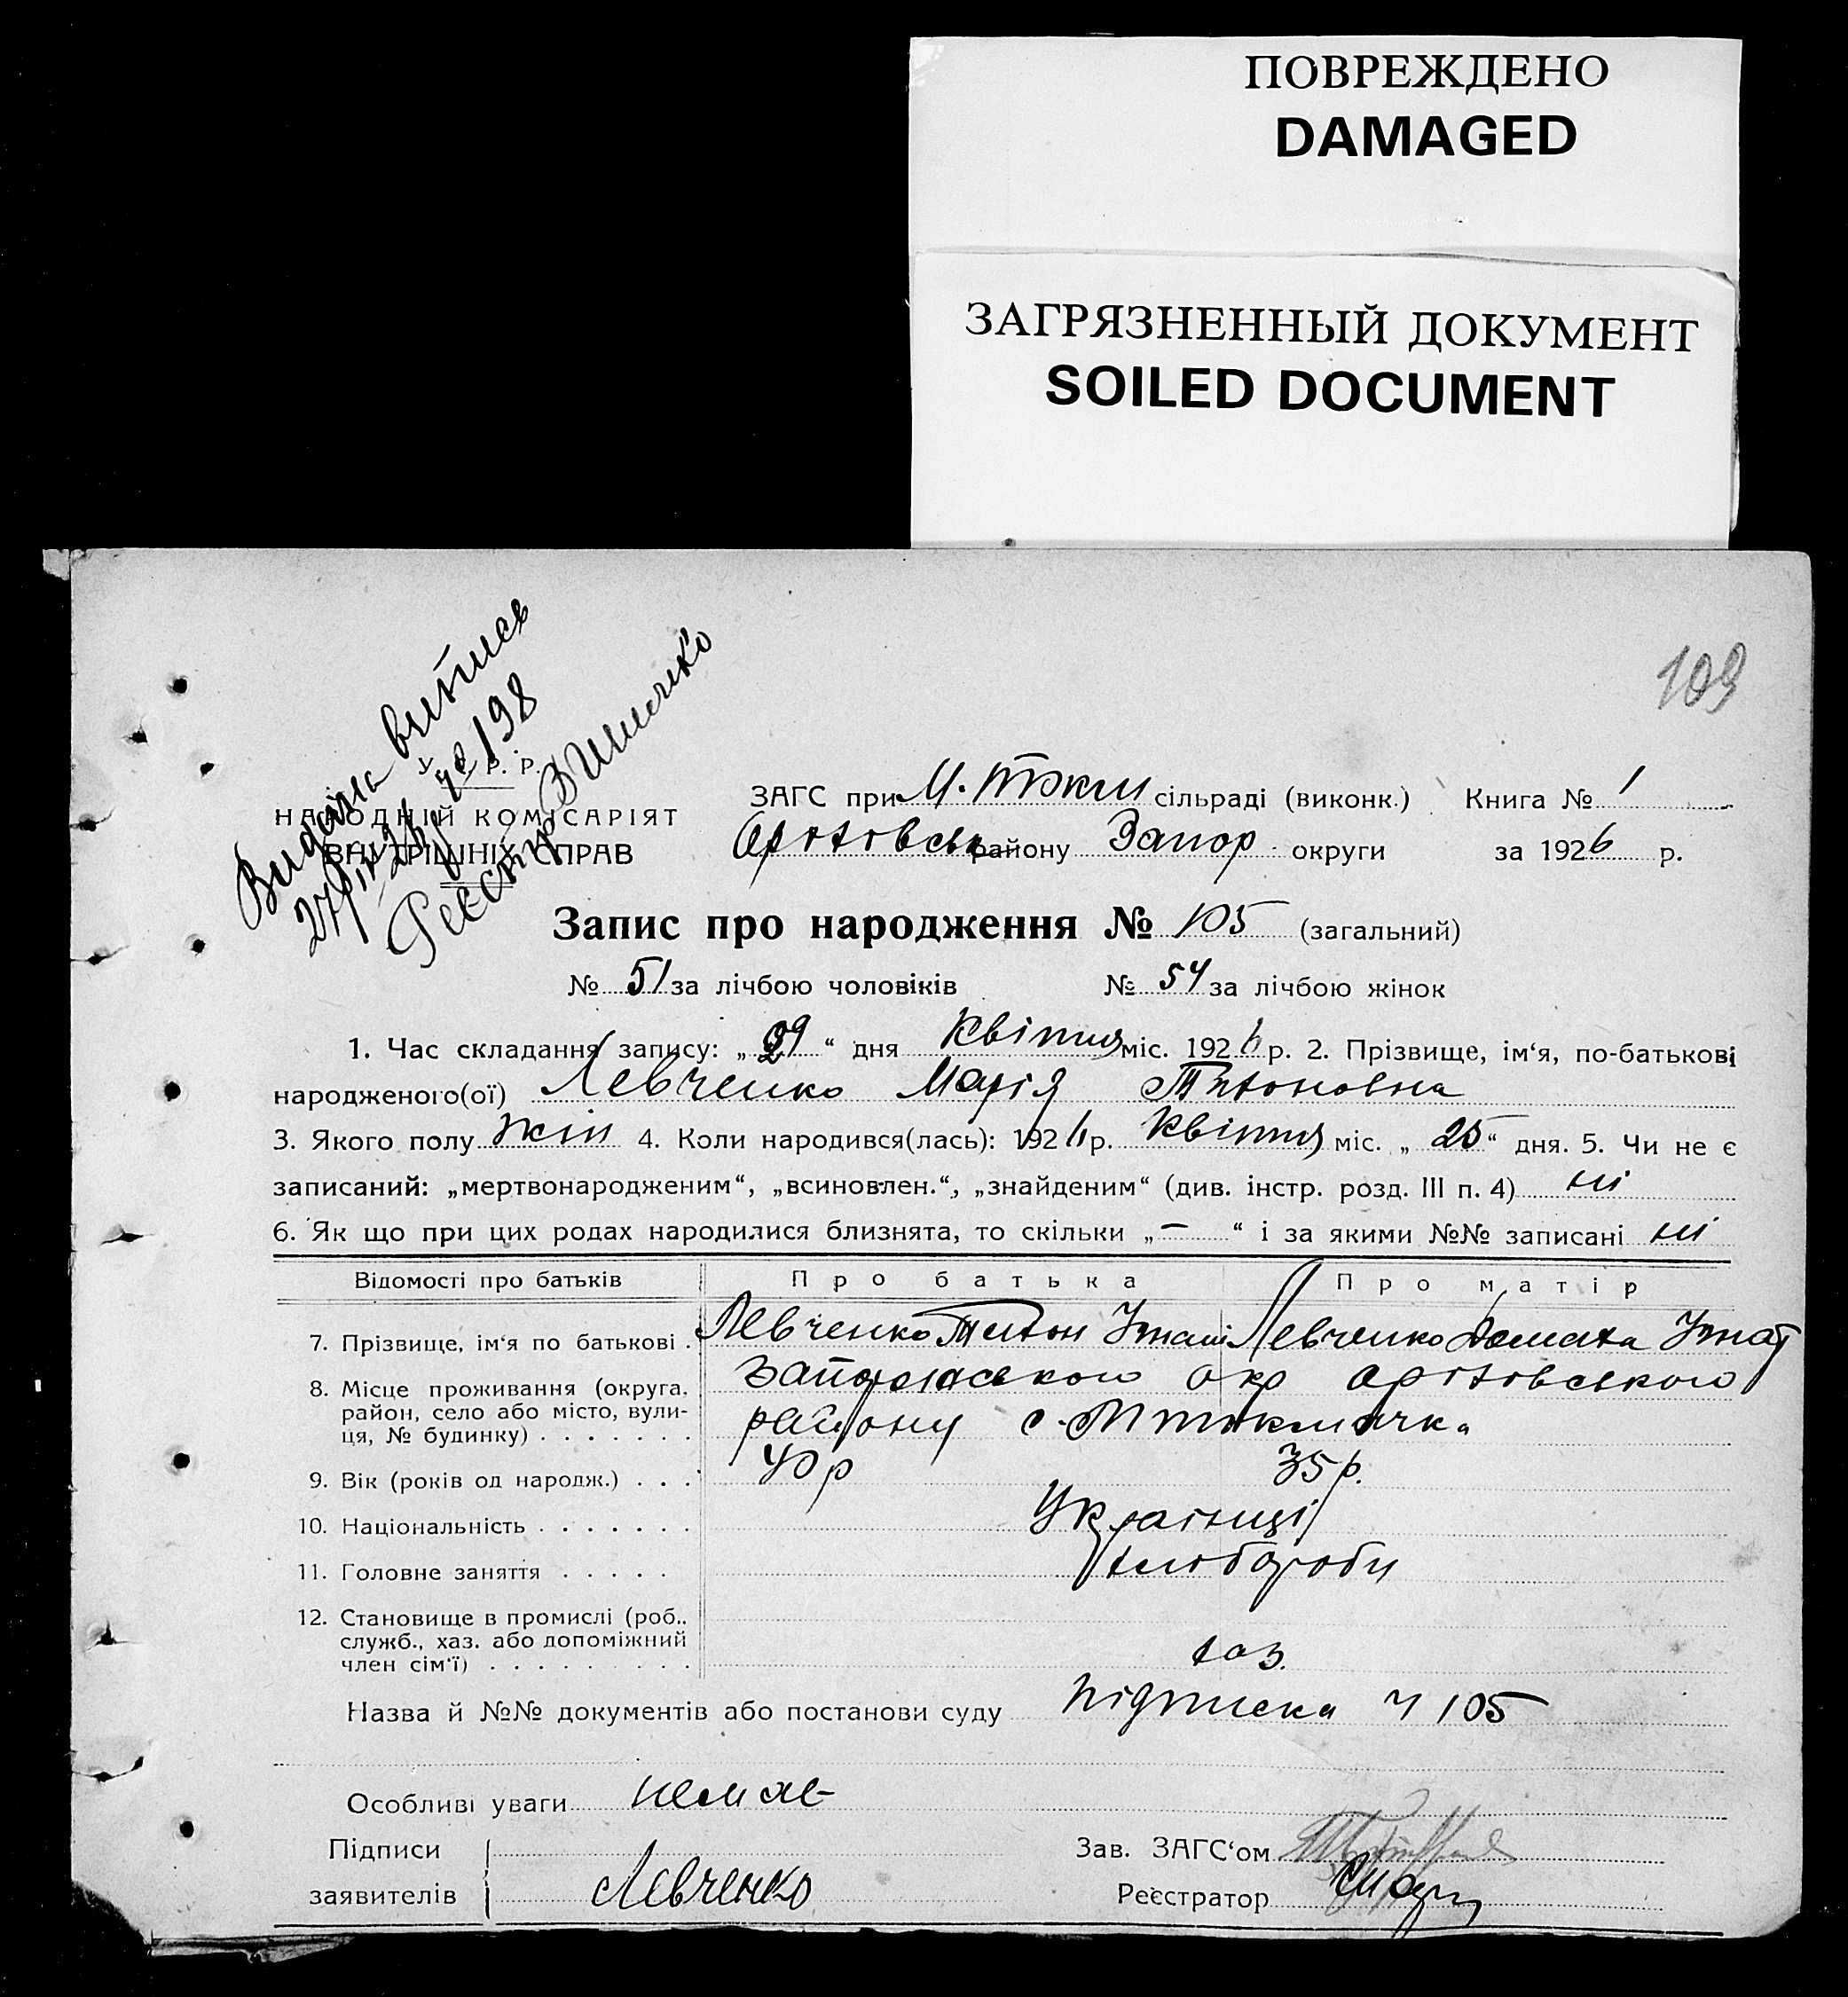 ПОВРЕЖДЕНО
DAMAGED
ЗАГРЯЗНЕННЫЙ ДОКУМЕНТ
SOILED DOCUMENT
109
Видана витпись
198
Реєстр Зинченко
У. С. Р. Р.
НАРОДНІЙ КОМІСАРІЯТ
ВНУТРІШНІХ СПРАВ
ЗАГС при М. Токм сільраді (виконк.) Книга № 1
району Запор округи за 1926 р.
Запис про народження № 105 (загальний)
№ 51 за лічбою чоловіків № 54 за лічбою жінок
1. Час складання запису: „ 29 “ дня Квітня міс. 1926 р. 2. Прізвище, ім‘я, по-батькові
народженого(ої) Левченко Марія Тихоновна
3. Якого полу жін 4. Коли народився(лась): 1926 р. Квітня міс. „ 25 “ дня. 5. Чи не є
записаний: „мертвонародженим“, „всиновлен.“, „знайденим“ (див. інстр. розд. III п. 4) ні
6. Як що при цих родах народилися близнята, то скільки „ — “ і за якими №№ записані ні
Відомості про батьків Про батька Про матір
7. Прізвище, ім‘я по батькові . Левченко Тихон Левченко Домаха
8. Місце проживання (округа, Запорожського окр
район, село або місто, вули- району с.
ця, № будинку) . . . . . . .
9. Вік (років од народж.) . . . 40 р 35 р.
10. Національність . . . . . . . Українці
11. Головне заняття . . . . . хлібороби
12. Становище в промислі (роб.,
служб., хаз. або допоміжний
член сім‘ї) . . . . . . . . . хаз.
Назва й №№ документів або постанови суду підписка ч 105
Особливі уваги немає
Підписи
заявителів Левченко
Зав. ЗАГС‘ом
Реєстратор